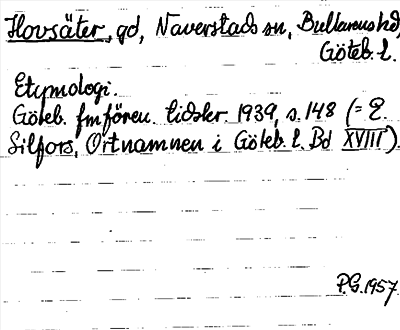 Hovsäter, gd, Naverstads sn, Bullarens hd,
Göteb. l.
Etymologi.
Göteb. fmfören. tidskr. 1939, s. 148 (= E.
Silfors, Ortnamnen i Göteb. l. Bd XVIII).
P.G. 1957